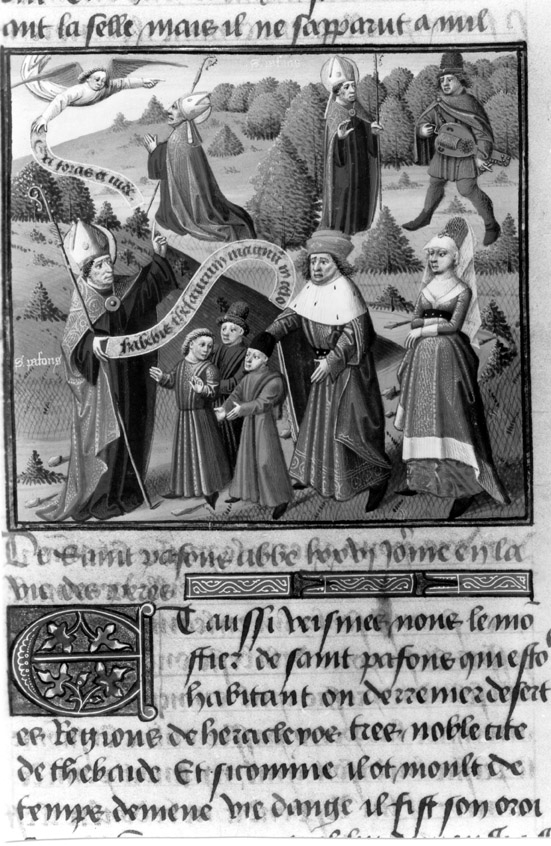 ant la selle mais il ne sapparut a nul
habebit thesaurum magnum in celo
s. pafons
De saint pafons abbe lxxvj home en la
vie des peres
Et aussi veismes nous le mo
stier de saint pafons qui esto
habitant ou derrenier desert
es Regions de heracleos tres noble cite
de thebaide Et sicomme il ot moult de
temps demene vie dange il fist son oroi